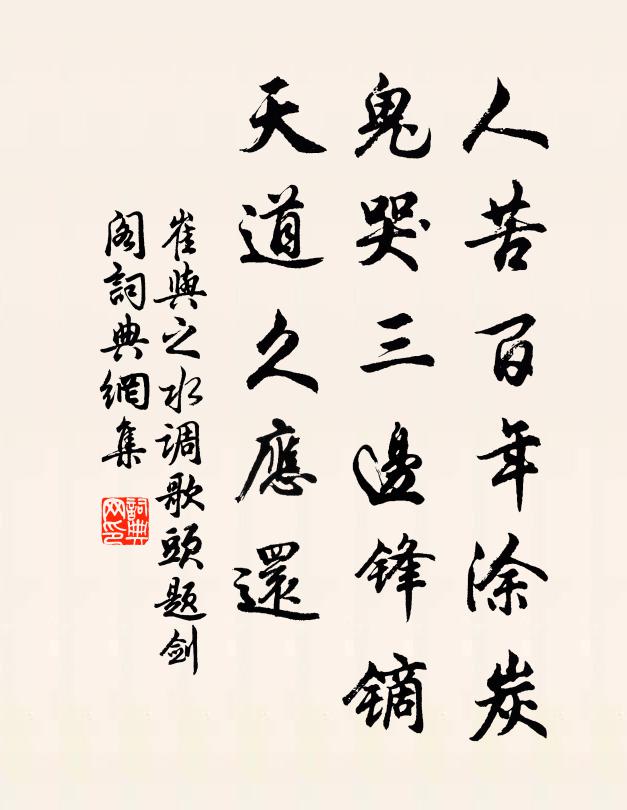 人苦百年涂炭
鬼哭三邊锋镝
天道久應還
崔與之水调歌頭题剑
阁詞典網集
詞典
网印